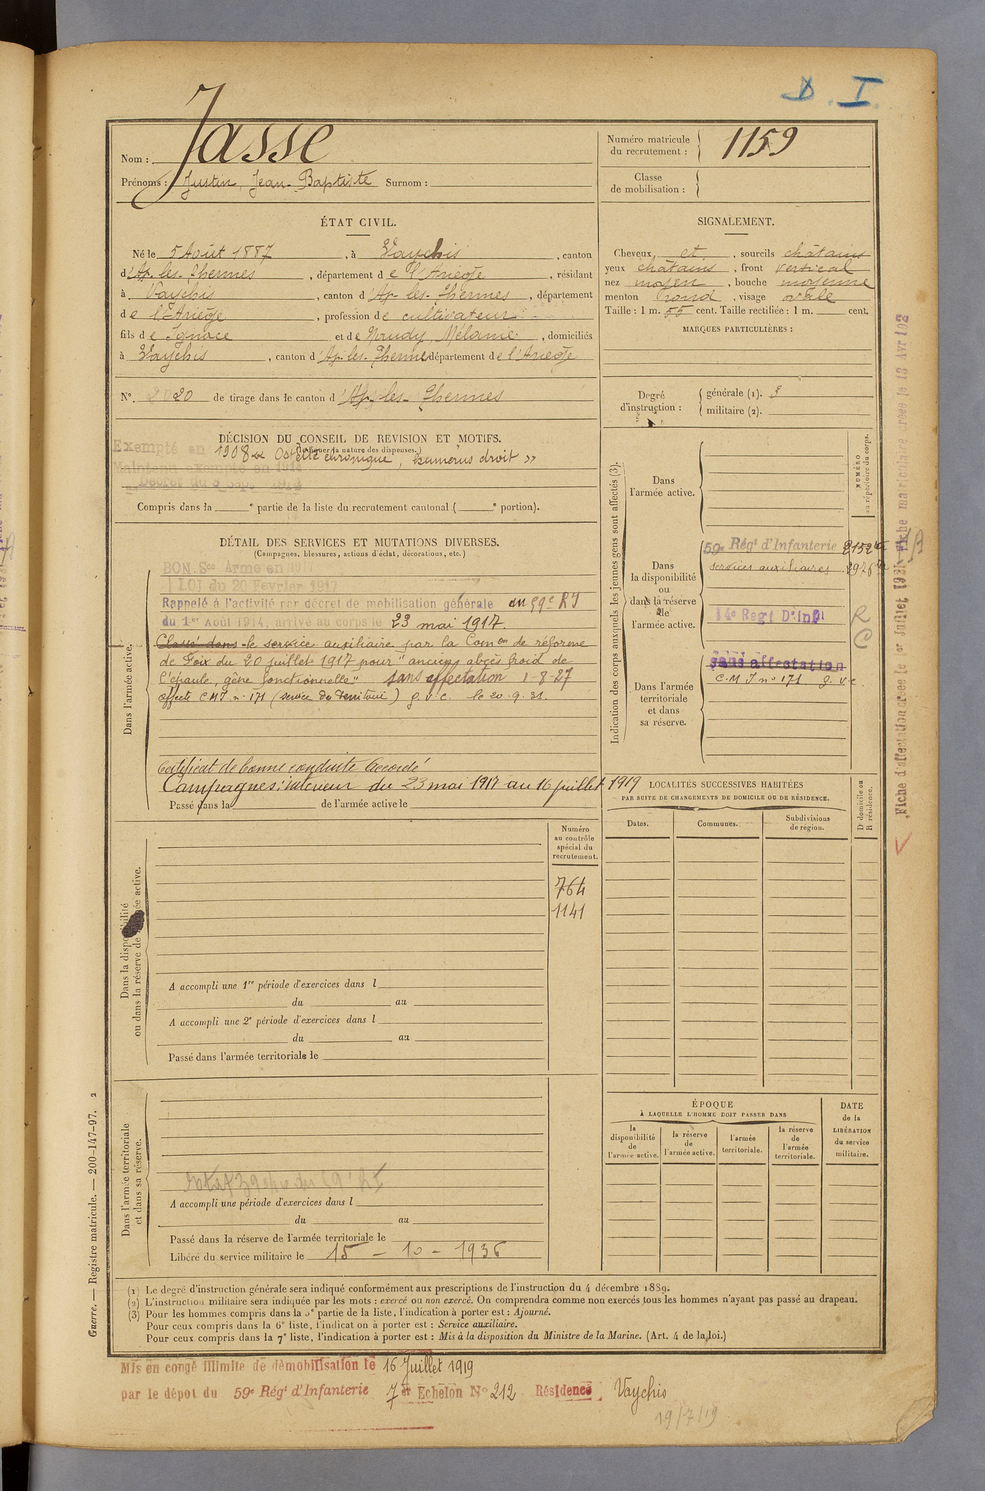 D. I.
Nom : Jasse
Prénoms : Justin, Jean-Baptiste Surnom :
Numéro matricule du recrutement : 1159
Classe de mobilisation :
ÉTAT CIVIL.
Né le 5 Août 1887, à Vaychis, canton
d'Ax-les-Thermes, département de l'Ariège, résidant
à Vaychis, canton d'Ax-les-Thermes, département
de l'Ariège, profession de cultivateur
fils de Ignace et de Naudy, Mélanie, domiciliés
à Vaychis, canton d'Ax-les-Thermes département de l'Ariège
N° 20 de tirage dans le canton d'Ax-les-Thermes
SIGNALEMENT.
Cheveux et, sourcils châtains
yeux châtains, front vertical
nez moyen, bouche moyenne
menton rond, visage ovale
Taille : 1 m. 55 cent. Taille rectifiée : 1 m. cent.
MARQUES PARTICULIÈRES :
Degré d'instruction :
générale (1). 3
militaire (2).
DÉCISION DU CONSEIL DE REVISION ET MOTIFS.
Exempté en 1908 « Ostéite chronique, humérus droit »
Maintenu exempté en 1914
Décret du 9 Sept. 1914
Compris dans la e partie de la liste du recrutement cantonal ( e portion).
DÉTAIL DES SERVICES ET MUTATIONS DIVERSES.
(Campagnes, blessures, actions d'éclat, décorations, etc.)
BON. Sce Armé en 1917
LOI du 20 Fevrier 1917
Rappelé à l'activité par décret de mobilisation générale au 59e RI
du 1er Août 1914, arrivé au corps le 23 mai 1917.
Classé dans le service auxiliaire par la Comon de réforme
de Foix du 20 juillet 1917 pour "anciens abcès froid de
l'épaule, gêne fonctionnelle" sans affectation 1-8-27
affecté C M I n° 171 (service du territoire) g. v. c. le 20.9.31.
Certificat de bonne conduite accordé
Campagnes : intérieur du 23 mai 1917 au 16 juillet 1919
Passé dans la de l'armée active le
Dans l'armée active.
Indication des corps auxquels les jeunes gens sont affectés (3).
Dans l'armée active.
NUMÉRO au répertoire du corps.
Dans la disponibilité ou dans la réserve de l'armée active.
59e Régt d'Infanterie
services auxiliaires
14e Regt D'Inf
R
C
Dans l'armée territoriale et dans sa réserve.
sans affectation
C M I n° 171 g. v. c.
Fiche d'affectation créée le 1er Juillet 1931
LOCALITÉS SUCCESSIVES HABITÉES
PAR SUITE DE CHANGEMENTS DE DOMICILE OU DE RÉSIDENCE.
Dates. Communes. Subdivisions de région. D domicile ou R résidence.
Dans la disponibilité ou dans la réserve de l'armée active.
Numéro au contrôle spécial du recrutement.
764
1141
A accompli une 1re période d'exercices dans l
du au
A accompli une 2e période d'exercices dans l
du au
Passé dans l'armée territoriale le
Dans l'armée territoriale et dans sa réserve.
A accompli une période d'exercices dans l
du au
Passé dans la réserve de l'armée territoriale le
Libéré du service militaire le 15 - 10 - 1936
ÉPOQUE
À LAQUELLE L'HOMME DOIT PASSER DANS
la disponibilité de l'armée active. la réserve de l'armée active. l'armée territoriale. la réserve de l'armée territoriale.
DATE de la LIBÉRATION du service militaire.
Guerre. — Registre matricule. — 200-147-97. 2
(1) Le degré d'instruction générale sera indiqué conformément aux prescriptions de l'instruction du 4 décembre 1889.
(2) L'instruction militaire sera indiquée par les mots : exercé ou non exercé. On comprendra comme non exercés tous les hommes n'ayant pas passé au drapeau.
(3) Pour les hommes compris dans la 5e partie de la liste, l'indication à porter est : Ajourné.
Pour ceux compris dans la 6e liste, l'indication à porter est : Service auxiliaire.
Pour ceux compris dans la 7e liste, l'indication à porter est : Mis à la disposition du Ministre de la Marine. (Art. 4 de la loi.)
Mis en congé illimité de démobilisation le 16 Juillet 1919
par le dépôt du 59e Régt d'Infanterie 7e Echelon N° 212 Résidence : Vaychis
19/7/19